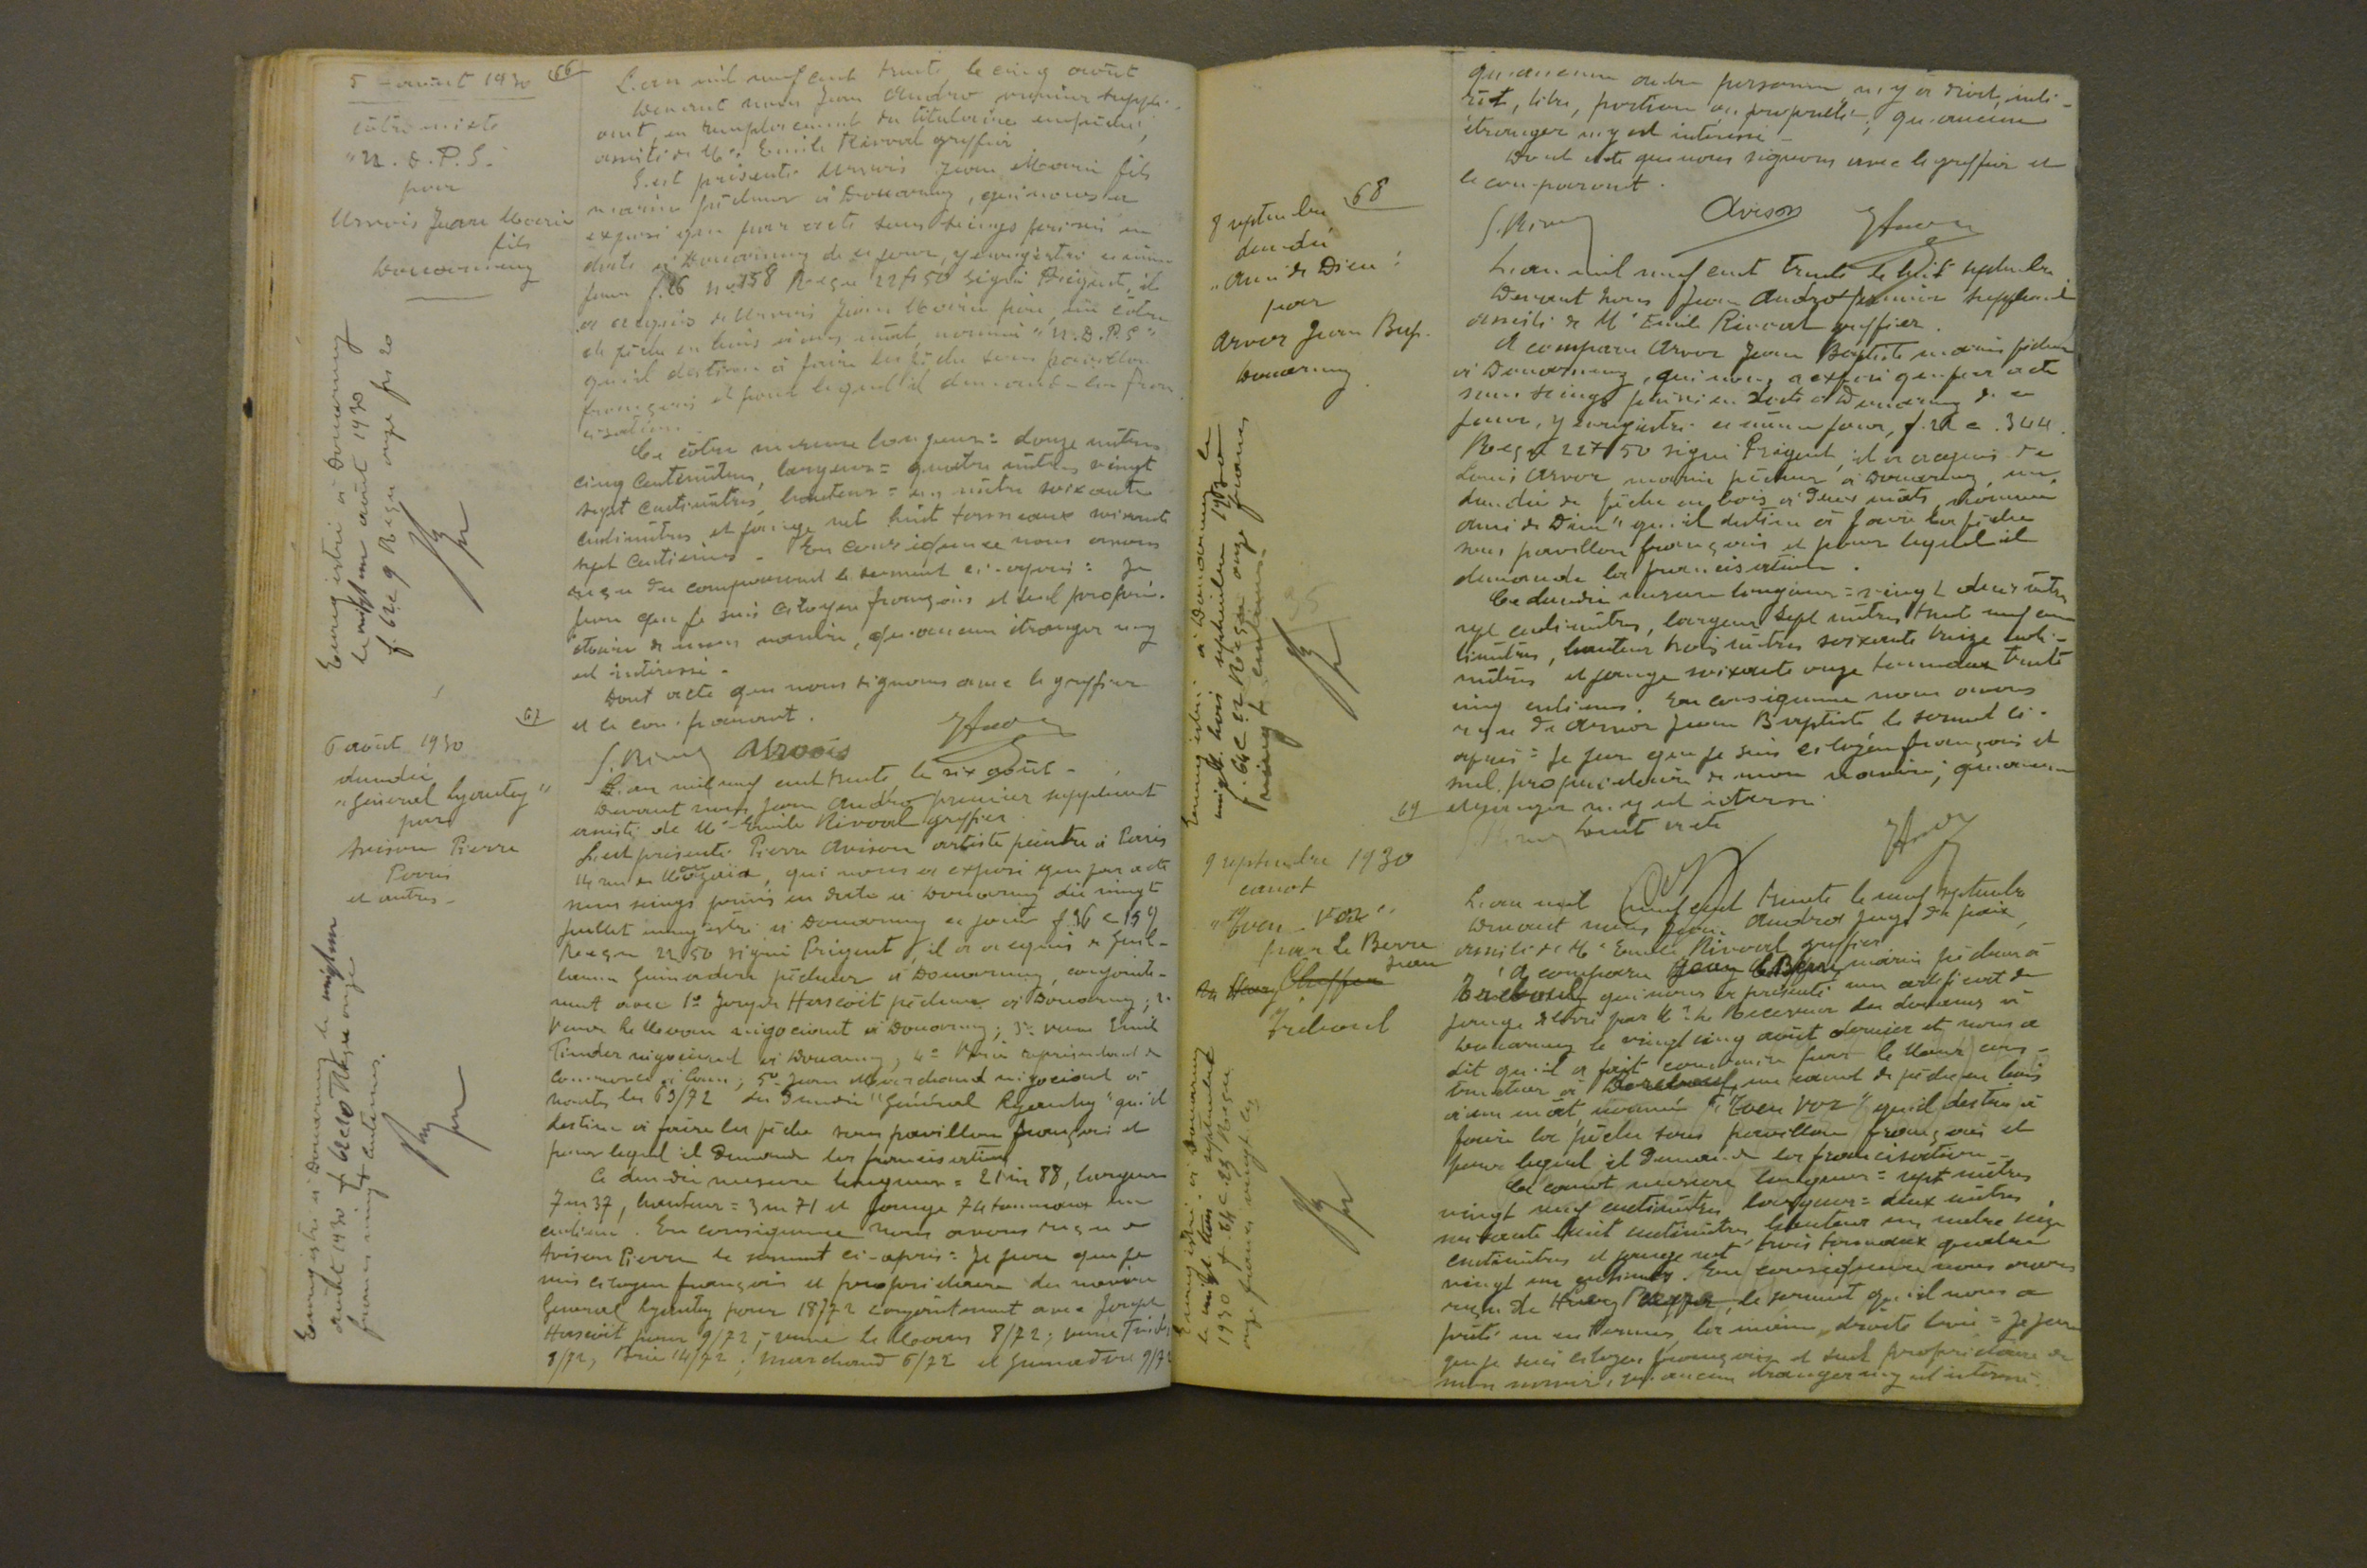 5 - août 1930
côtre mixte
"N. D. P. S."
pour
Urvois Jean Marie
fils
Douarnenez
Enregistré à Douarnenez
le vingt un août 1930
f. 64 c 9 Reçu onze frs 20
66
L'an mil neuf cent trente le cinq août
Devant nous Jean Andro premier supplé-
ant, en remplacement du titulaire empêché,
assisté de Me Emile Rivoal greffier
S'est présenté Urvois Jean Marie fils
marin pêcheur à Douarnenez, qui nous a
exposé que par acte sous seings privés en
date à Douarnenez de ce jour, y enregistré ce même
jour f. 26 no 158 Reçu 22f50 signé Prigent, il
a acquis de Urvois Jean Marie père, un côtre
de pêche en bois à un mât, nommé "N.D.P.S"
qu'il destine à faire la pêche sous pavillon
français et pour lequel il demande la franc
isation.
Ce côtre mesure longueur = douze mètres
cinq centimètres, largeur = quatre mètres vingt
sept centimètres, hauteur = un mètre soixante
centimètres et jauge net huit tonneaux soixante
sept centièmes - En conséquence nous avons
reçu du comparant le serment ci-après : Je
jure que je suis citoyen français et seul propri-
étaire de mon navire, qu'aucun étranger n'y
est intéressé -
Dont acte que nous signons avec le greffier
et le comparant.
Urvois
6 août 1930
dundée
"Général Lyautey"
par
Avison Pierre
Paris
et autres -
Enregistré à Douarnenez le vingt un
août 1930 f 64 c 10 Reçu onze
francs vingt centimes.
67
L'an mil neuf cent trente le six août -
Devant nous Jean Andro premier suppléant
assisté de Me Emile Rivoal greffier
S'est présenté Pierre Avison artiste peintre à Paris
rue de qui nous a exposé que par acte
sous seings privés en date à Douarnenez du vingt
juillet enregistré à Douarnenez ce jour f 36 c 159
Reçu 22 50 signé Prigent, il a acquis de Guil-
laume Guinadère pêcheur à Douarnenez, conjointe-
ment avec 1o Joseph Hascoët pêcheur à Douarnenez ; 2o
Veuve Le négociant à Douarnenez ; 3o veuve Emile
négociant à Douarnenez, 4o représentant de
commerce à ; 5o Jean Marchand négociant à
Nantes les 63/72 du dundée "Général Lyautey" qu'il
destine à faire la pêche sous pavillon français et
pour lequel il demande la francisation
Ce dundée mesure longueur = 21 m 88, largeur
7 m 37, hauteur = 3 m 71 et jauge 74 tonneaux un
centième. En conséquence nous avons reçu de
Avison Pierre le serment ci-après : Je jure que je
suis citoyen français et propriétaire du navire
Général Lyautey pour 18/72 conjointement avec Joseph
Hascoët pour 9/72 ; veuve Le 8/72 ; veuve
8/72, 14/72 ; Marchand 6/72 et Guinadère 9/72
qu'aucune autre personne n'y a droit, inté-
rêt, titre, portion ou propriété ; qu'aucun
étranger n'y est intéressé -
Dont acte que nous signons avec le greffier et
le comparant.
Avison
68
8 septembre
dundée
"Ami de Dieu"
par
Arvor Jean Bap.
Douarnenez
Enregistré à Douarnenez le
vingt trois septembre 1930
f. 64 c 22 Reçu onze francs
vingt centimes
L'an mil neuf cent trente le huit septembre
Devant nous Jean Andro premier suppléant
assisté de Me Emile Rivoal greffier.
A comparu Arvor Jean Baptiste marin pêcheur
à Douarnenez, qui nous a exposé que par acte
sous seings privés en date à Douarnenez de ce
jour, y enregistré ce même jour, f. 28 c. 344.
Reçu 22f 50 signé Prigent, il a acquis de
Louis Arvor marin pêcheur à Douarnenez, un
dundée de pêche en bois à deux mâts, nommé
Ami de Dieu" qu'il destine à faire la pêche
sous pavillon français et pour lequel il
demande la francisation.
Ce dundée mesure longueur = vingt deux mètres
sept centimètres, largeur sept mètres trente neuf cen
timètres, hauteur trois mètres soixante treize centi-
mètres et jauge soixante onze tonneaux trente
cinq centièmes. En conséquence nous avons
reçu de Arvor Jean Baptiste le serment ci-
après : Je jure que je suis citoyen français et
seul propriétaire de mon navire ; qu'aucun
étranger n'y est intéressé
Dont acte
69
9 septembre 1930
canot
"Iven - Voz"
pour Le Berre
Jean
Tréboul
Enregistré à Douarnenez
le vingt trois septembre
1930 f. 64 c. 23 Reçu
onze francs vingt c.
L'an mil neuf cent trente le neuf septembre
Devant nous Jean Andro juge de paix,
assisté de Me Emile Rivoal greffier
A comparu Jean Le Berre marin pêcheur à
Tréboul qui nous a présenté un certificat de
jauge délivré par Mr le Receveur des douanes à
Douarnenez le vingt cinq août dernier et nous a
dit qu'il a fait construire par le sieur cons-
tructeur à un canot de pêche en bois
à un mât, nommé "Iven Voz" qu'il destine à
faire la pêche sous pavillon français et
pour lequel il demande la francisation -
Ce canot mesure longueur = sept mètres
vingt neuf centimètres largeur = deux mètres
soixante huit centimètres hauteur un mètre seize
centimètres et jauge net trois tonneaux quatre
vingt un centièmes. En conséquence nous avons
reçu de le serment qu'il nous a
prêté en ces termes, la main droite levée = Je jure
que je suis citoyen français et seul propriétaire de
mon navire, qu'aucun étranger n'y est intéressé.